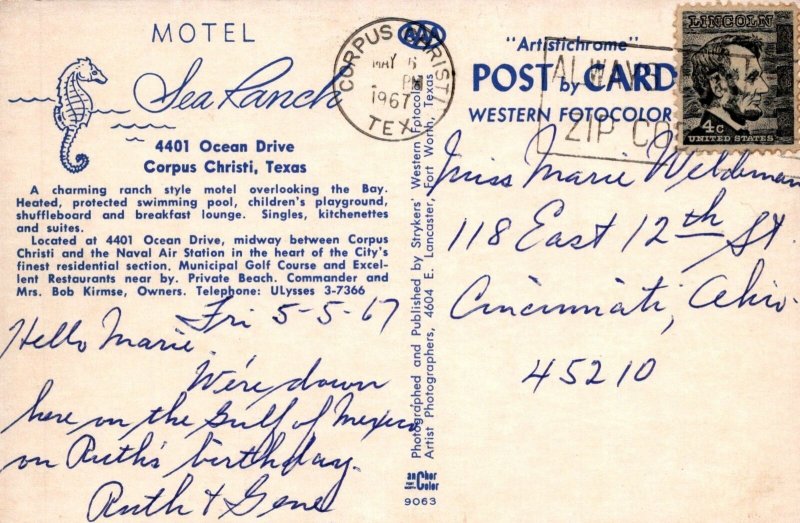 MOTEL
Sea Ranch
4401 Ocean Drive
Corpus Christi, Texas
A charming ranch style motel overlooking the Bay.
Heated, protected swimming pool, children's playground,
shuffleboard and breakfast lounge. Singles, kitchenettes
and suites.
Located at 4401 Ocean Drive, midway between Corpus
Christi and the Naval Air Station in the heart of the City's
finest residential section. Municipal Golf Course and Excel-
lent Restaurants near by. Private Beach. Commander and
Mrs. Bob Kirmse, Owners. Telephone: ULysses 3-7366
Fri 5-5-67
Hello Marie,
We're down
here on the Gulf of Mexico
on Ruth's birthday.
Ruth & Gene
AAA
CORPUS CHRISTI
MAY 6
PM
1967
TEX
Photographed and Published by Strykers' Western Fotocolor
Artist Photographers, 4604 E. Lancaster, Fort Worth, Texas
anchor
Color
9063
"Artistichrome"
POST by CARD
WESTERN FOTOCOLOR
ALWAYS
ZIP CO
LINCOLN
4c
UNITED STATES
Miss Marie Weldeman
118 East 12th St.
Cincinnati, Ohio.
45210